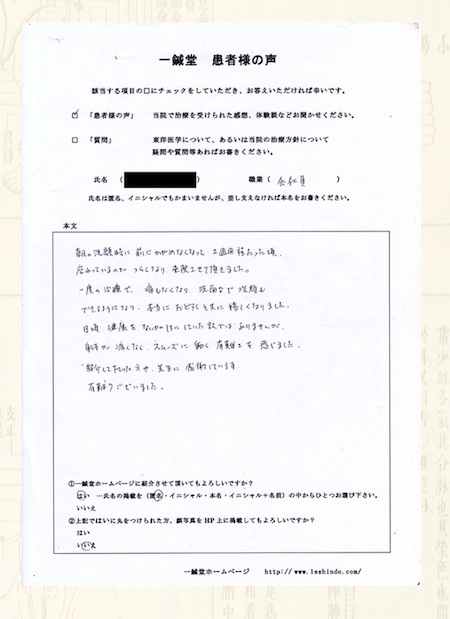 一鍼堂 患者様の声
該当する項目の□にチェックをしていただき、お答えいただければ幸いです。
☑ 「患者様の声」 当院で治療を受けられた感想、体験談などお聞かせください。
□ 「質問」 東洋医学について、あるいは当院の治療方針について
疑問や質問等あればお書きください。
氏名 ( ) 職業 ( 会社員 )
氏名は匿名、イニシャルでもかまいませんが、差し支えなければ本名をお書きください。
本文
朝の洗顔時に前にかがめなくなって 2週間程たった頃、
座っているのが つらくなり、来院させて頂きました。
一度の治療で、痛みもなくなり、洗面台で洗顔も
できるようになり、本当におどろくと共に嬉しくなりました。
日頃 健康を ないがしろにしていた訳ではありませんが、
身体が痛くなく、スムーズに動く有難さを感じました。
紹介して下さった方や、先生に感謝しています。
有難うございました。
①一鍼堂ホームページに紹介させて頂いてもよろしいですか？
はい …氏名の掲載を（匿名・イニシャル・本名・イニシャル＋名前）の中からひとつお選び下さい。
いいえ
②上記ではいに丸をつけられた方、顔写真を HP 上に掲載してもよろしいですか？
はい
いいえ
一鍼堂ホームページ http://www.1sshindo.com/